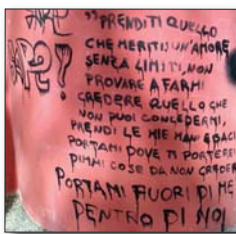 "PRENDITI QUELLO
CHE MERITI UN'AMORE
SENZA LIMITI, NON
PROVARE A FARMI
CREDERE QUELLO CHE
NON PUOI CONCEDERMI,
PRENDI LE MIE MANI E
PORTAMI DOVE TI PORTEREI
DIMMI COSE DA NON CREDER
PORTAMI FUORI DI ME
DENTRO DI NOI